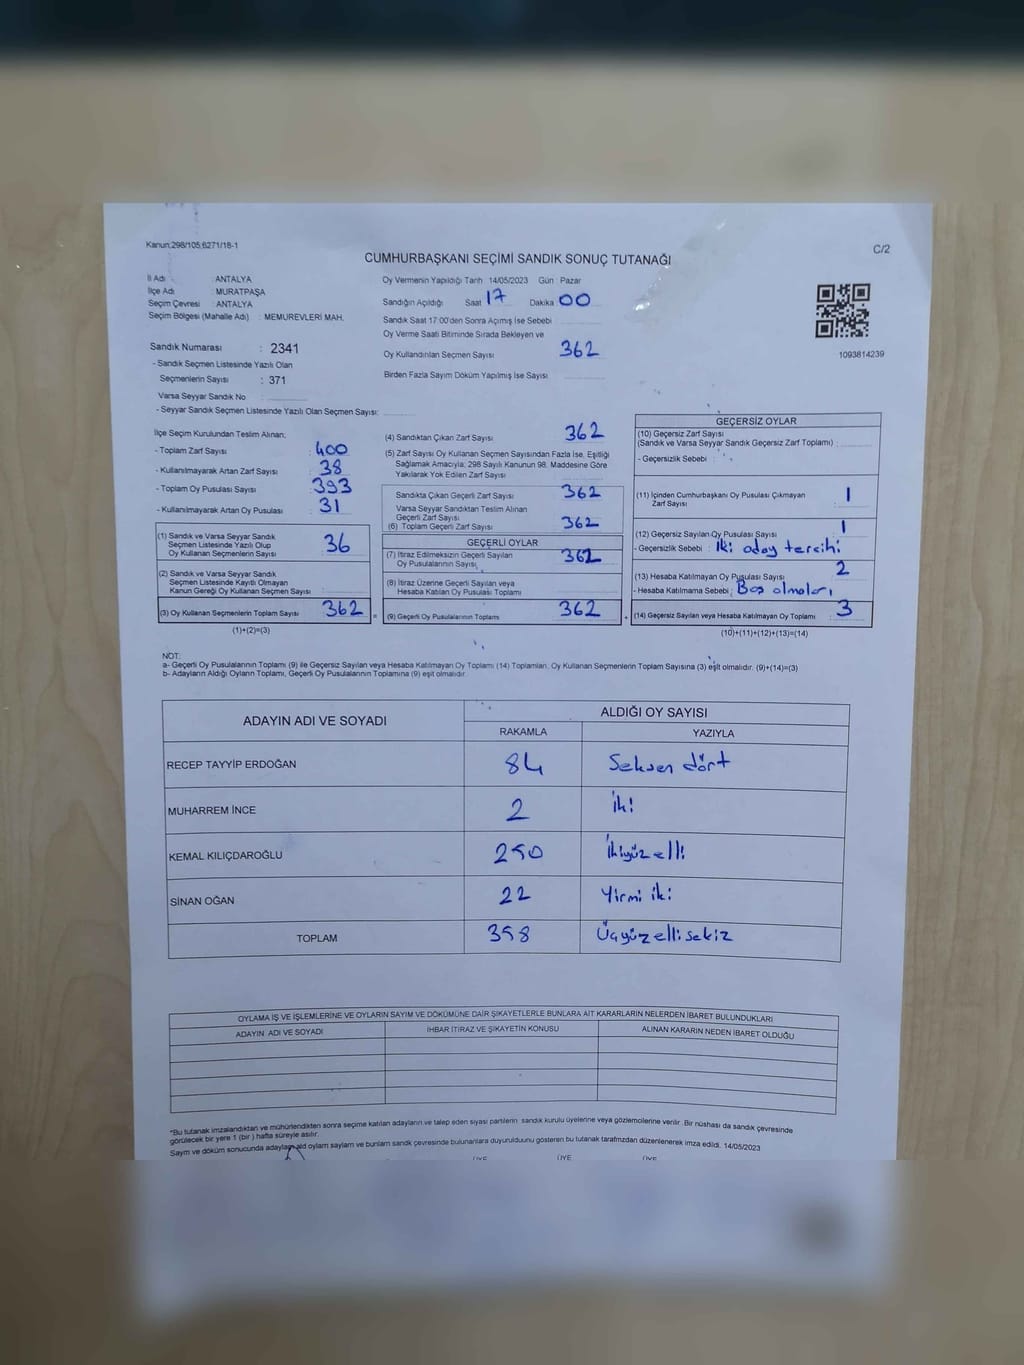 Kanun:298/105,6271/18-1
C/2
CUMHURBAŞKANI SEÇİMİ SANDIK SONUÇ TUTANAĞI
İl Adı : ANTALYA
İlçe Adı : MURATPAŞA
Seçim Çevresi : ANTALYA
Seçim Bölgesi (Mahalle Adı) : MEMUREVLERİ MAH.
Oy Vermenin Yapıldığı Tarih 14/05/2023 Gün : Pazar
Sandığın Açıldığı Saat 17 Dakika 00
Sandık Saat 17:00'den Sonra Açımış İse Sebebi
Oy Verme Saati Bitiminde Sırada Bekleyen ve
Oy Kullandırılan Seçmen Sayısı 362
Birden Fazla Sayım Döküm Yapılmış İse Sayısı
1093814239
Sandık Numarası : 2341
- Sandık Seçmen Listesinde Yazılı Olan
Seçmenlerin Sayısı : 371
Varsa Seyyar Sandık No
- Seyyar Sandık Seçmen Listesinde Yazılı Olan Seçmen Sayısı:
İlçe Seçim Kurulundan Teslim Alınan;
- Toplam Zarf Sayısı : 400
- Kullanılmayarak Artan Zarf Sayısı 38
- Toplam Oy Pusulası Sayısı 393
- Kullanılmayarak Artan Oy Pusulası 31
(1) Sandık ve Varsa Seyyar Sandık
Seçmen Listesinde Yazılı Olup
Oy Kullanan Seçmenlerin Sayısı 36
(2) Sandık ve Varsa Seyyar Sandık
Seçmen Listesinde Kayıtlı Olmayan
Kanun Gereği Oy Kullanan Seçmen Sayısı
(3) Oy Kullanan Seçmenlerin Toplam Sayısı 362 =
(1)+(2)=(3)
(4) Sandıktan Çıkan Zarf Sayısı 362
(5) Zarf Sayısı Oy Kullanan Seçmen Sayısından Fazla İse, Eşitliği
Sağlamak Amacıyla; 298 Sayılı Kanunun 98. Maddesine Göre
Yakılarak Yok Edilen Zarf Sayısı
Sandıkta Çıkan Geçerli Zarf Sayısı 362
Varsa Seyyar Sandıktan Teslim Alınan
Geçerli Zarf Sayısı
(6) Toplam Geçerli Zarf Sayısı 362
GEÇERLİ OYLAR
(7) İtiraz Edilmeksizin Geçerli Sayılan
Oy Pusulalarının Sayısı 362
(8) İtiraz Üzerine Geçerli Sayılan veya
Hesaba Katılan Oy Pusulası Toplamı
(9) Geçerli Oy Pusulalarının Toplamı 362 +
GEÇERSİZ OYLAR
(10) Geçersiz Zarf Sayısı
(Sandık ve Varsa Seyyar Sandık Geçersiz Zarf Toplamı) :
- Geçersizlik Sebebi :
(11) İçinden Cumhurbaşkanı Oy Pusulası Çıkmayan
Zarf Sayısı 1
(12) Geçersiz Sayılan Oy Pusulası Sayısı 1
- Geçersizlik Sebebi : İki aday tercihi
(13) Hesaba Katılmayan Oy Pusulası Sayısı 2
- Hesaba Katılmama Sebebi : Boş olmaları
(14) Geçersiz Sayılan veya Hesaba Katılmayan Oy Toplamı : 3
(10)+(11)+(12)+(13)=(14)
NOT:
a- Geçerli Oy Pusulalarının Toplamı (9) ile Geçersiz Sayılan veya Hesaba Katılmayan Oy Toplamı (14) Toplamları, Oy Kullanan Seçmenlerin Toplam Sayısına (3) eşit olmalıdır. (9)+(14)=(3)
b- Adayların Aldığı Oyların Toplamı, Geçerli Oy Pusulalarının Toplamına (9) eşit olmalıdır
ADAYIN ADI VE SOYADI
ALDIĞI OY SAYISI
RAKAMLA YAZIYLA
RECEP TAYYİP ERDOĞAN 84 Seksen dört
MUHARREM İNCE 2 İki
KEMAL KILIÇDAROĞLU 250 İkiyüzelli
SİNAN OĞAN 22 Yirmi iki
TOPLAM 358 Üçyüzellisekiz
OYLAMA İŞ VE İŞLEMLERİNE VE OYLARIN SAYIM VE DÖKÜMÜNE DAİR ŞİKAYETLERLE BUNLARA AİT KARARLARIN NELERDEN İBARET BULUNDUKLARI
ADAYIN ADI VE SOYADI İHBAR İTİRAZ VE ŞİKAYETİN KONUSU ALINAN KARARIN NEDEN İBARET OLDUĞU
*Bu tutanak imzalandıktan ve mühürlendikten sonra seçime katılan adayların ve talep eden siyasi partilerin sandık kurulu üyelerine veya gözlemcilerine verilir. Bir nüshası da sandık çevresinde
görülecek bir yere 1 (bir) hafta süreyle asılır.
Sayım ve döküm sonucunda adaylara aid oyların sayları ve bunların sandık çevresinde bulunanlara duyurulduğunu gösteren bu tutanak tarafımızdan düzenlenerek imza edildi. 14/05/2023
ÜYE ÜYE ÜYE